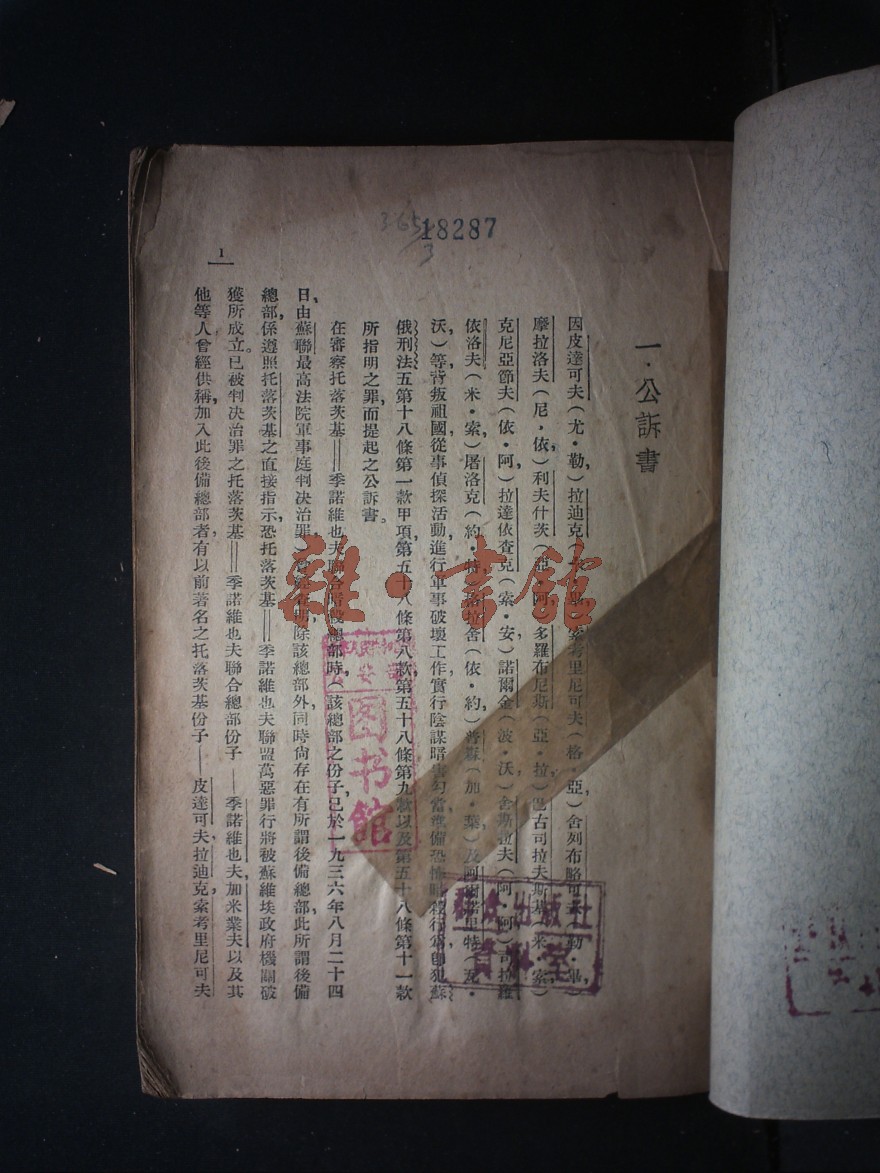 18287
365
3
1
一·公訴書
因皮達可夫（尤·勒）拉迪克 索考里尼可夫（格·亞）舍列布略可夫（勒·
摩拉洛夫（尼·依）利夫什茨（亞·阿 多羅布尼斯（亞·拉）古司拉夫斯基 米·索）
克尼亞節夫（依·阿）拉達依查克（索·安）諾爾金（波·沃）舍斯拉夫（阿·阿）司拉羅
依洛夫（米·索）屠洛克（約·特）格拉舍（依·約）普森（加·葉）及阿爾諾里特（瓦·
沃）等背叛祖國，從事偵探活動，進行軍事破壞工作，實行陰謀暗害勾當，準備恐怖暗殺行為，即犯蘇
俄刑法五第十八條第一款甲項，第五十八條第八款，第五十八條第九款以及第五十八條第十一款
所指明之罪，而提起之公訴書。
在審察托落茨基＝季諾維也夫聯合 總部時，（該總部之份子，已於一九三六年八月二十四
日，由蘇聯最高法院軍事庭判决治罪） 除該總部外，同時尚存在有所謂後備總部，此所謂後備
總部，係遵照托落茨基之直接指示，恐托落茨基＝季諾維也夫聯盟萬惡罪行將被蘇維埃政府機關破
獲所成立。已被判决治罪之托落茨基＝季諾維也夫聯合總部份子——季諾維也夫，加米業夫以及其
他等人曾經供稱，加入此後備總部者，有以前著名之托落茨基份子——皮達可夫，拉迪克，索考里尼可夫
图书馆
出版社
資料室
雜·書館